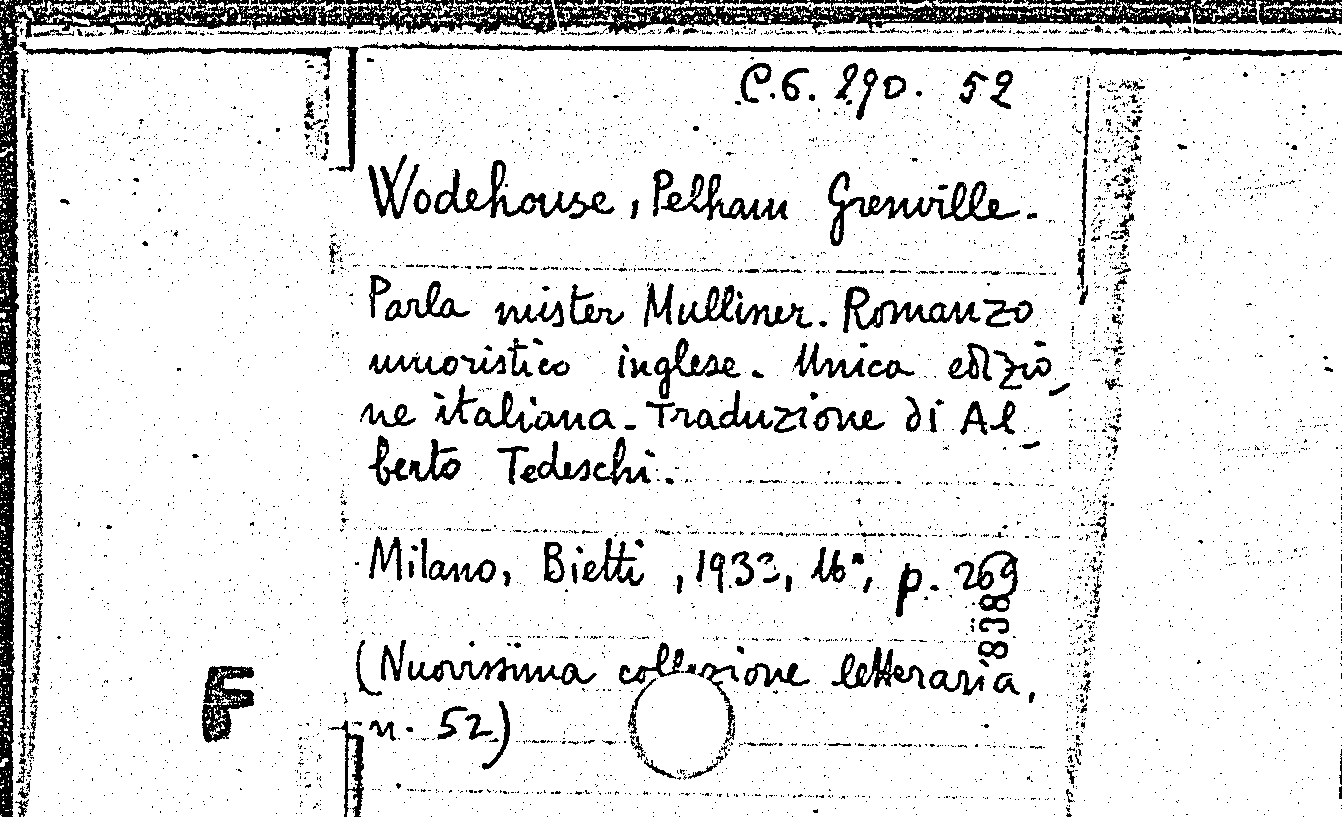 C.6. 290. 52
Wodehouse, Pelham Grenville.
Parla mister Mulliner. Romanzo
umoristico inglese. Unica edizio_
ne italiana. Traduzione di Al_
berto Tedeschi.
Milano, Bietti, 1933, 16°, p. 269
838
(Nuovissima collezione letteraria,
n. 52)
F